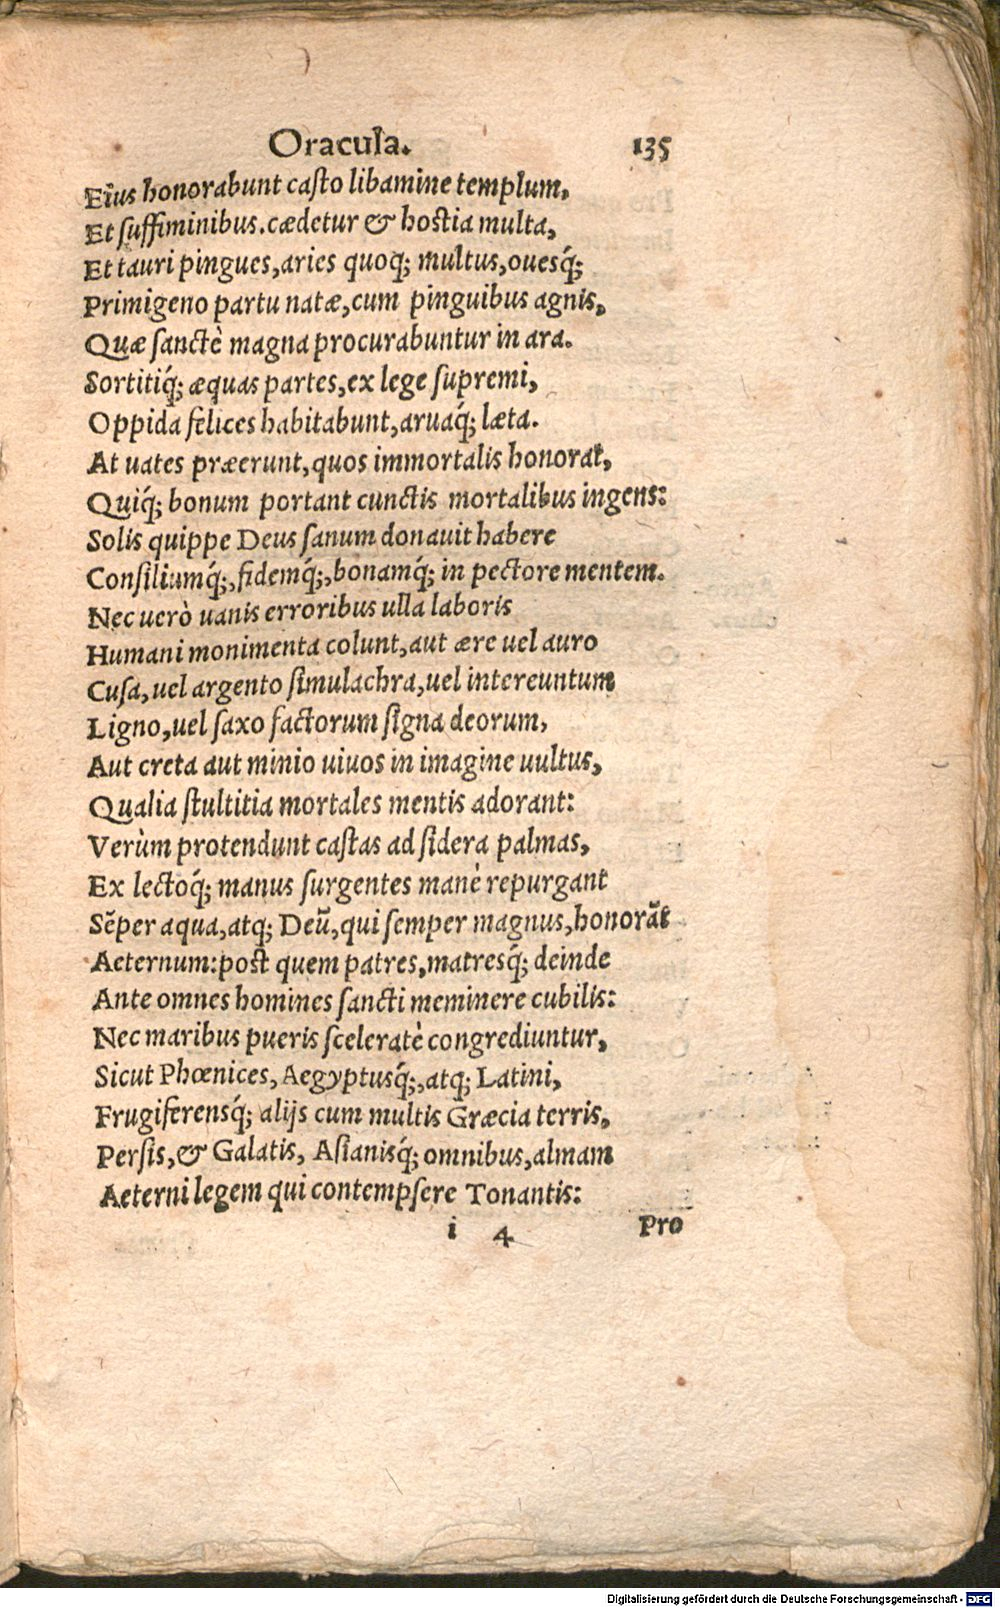 Oracula. 135
Eius honorabunt casto libamine templum,
Et suffiminibus. cædetur & hostia multa,
Et tauri pingues, aries quoq; multus, ouesq́;
Primigeno partu natæ, cum pinguibus agnis,
Quæ sanctè magna procurabuntur in ara.
Sortitiq́; æquas partes, ex lege supremi,
Oppida felices habitabunt, aruaq́; læta.
At uates præerunt, quos immortalis honorat,
Quiq́; bonum portant cunctis mortalibus ingens:
Solis quippe Deus sanum donauit habere
Consiliumq́;, fidemq́;, bonamq́; in pectore mentem.
Nec uerò uanis erroribus ulla laboris
Humani monimenta colunt, aut ære uel auro
Cusa, uel argento simulachra, uel intereuntum
Ligno, uel saxo factorum signa deorum,
Aut creta aut minio uiuos in imagine uultus,
Qualia stultitia mortales mentis adorant:
Verùm protendunt castas ad sidera palmas,
Ex lectoq́; manus surgentes manè repurgant
Sẽper aqua, atq; Deũ, qui semper magnus, honorãt
Aeternum: post quem patres, matresq́; deinde
Ante omnes homines sancti meminere cubilis:
Nec maribus pueris sceleratè congrediuntur,
Sicut Phœnices, Aegyptusq́;, atq; Latini,
Frugiferensq́; alijs cum multis Græcia terris,
Persis, & Galatis, Asianisq́; omnibus, almam
Aeterni legem qui contempsere Tonantis:
i 4 Pro
Digitalisierung gefördert durch die Deutsche Forschungsgemeinschaft - DFG